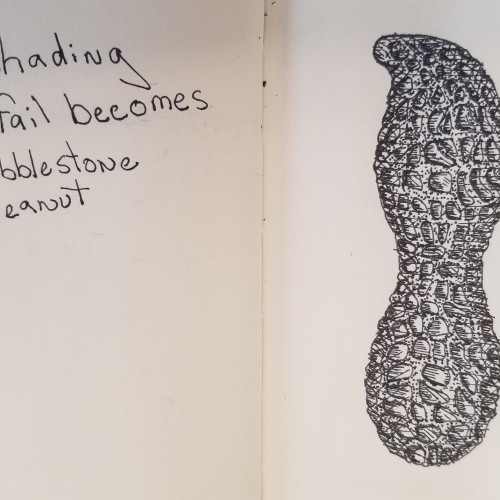 hading
fail becomes
bblestone
eanut